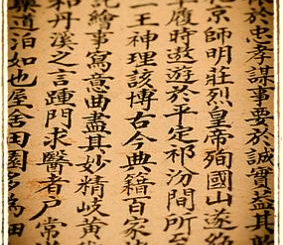 於忠孝謀事要於誠實盡其
京師明莊烈皇帝殉國山遂
履時遨遊於平定祁汾間所至
一王神理該博古今典籍百家
記繪事寫意曲盡其妙精岐黄
和丹溪之言踵門求醫者户常
道泊如也屋舍田園多爲田